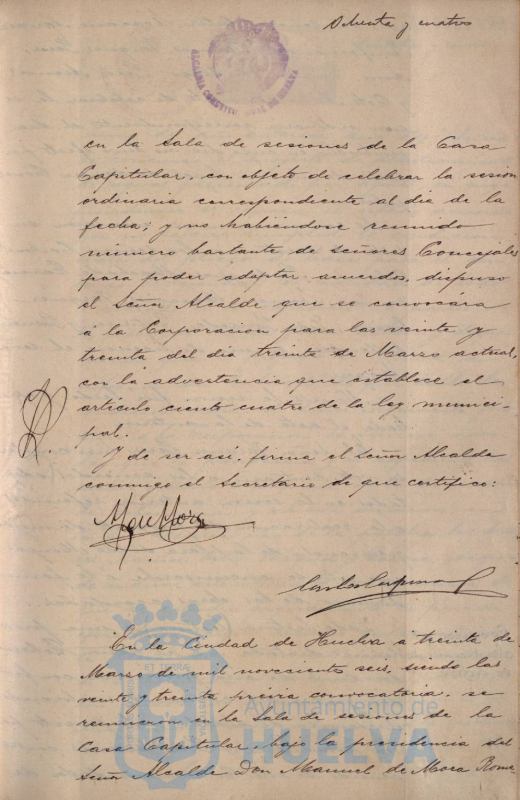 Ochenta y cuatro
ALCALDIA CONSTITUCIONAL DE HUELVA
en la Sala de sesiones de la Casa
Capitular, con objeto de celebrar la sesion
ordinaria correspondiente al dia de la
fecha; y no habiéndose reunido
número bastante de señores Concejales
para poder adoptar acuerdos, dispuso
el Señor Alcalde que se convocara
á la Corporacion para las veinte y
treinta del dia treinta de Marzo actual,
con la advertencia que establece el
articulo ciento cuatro de la ley munici-
pal.
Y de ser asi, firma el señor Alcalde
conmigo el Secretario de que certifico:
M de Mora
En la Ciudad de Huelva á treinta de
Marzo de mil novecientos seis, siendo las
veinte y treinta prévia convocatoria, se
reunieron en la Sala de sesiones de la
Casa Capitular, bajo la presidencia del
Señor Alcalde Don Manuel de Mora Rome-
Ayuntamiento de
HUELVA